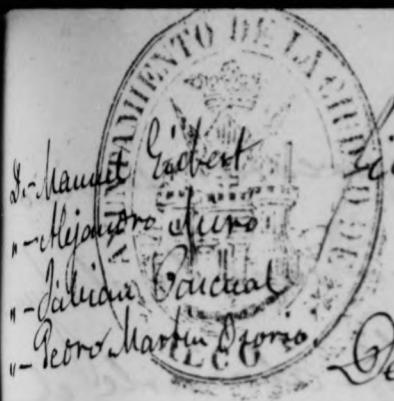 AYUNTAMIENTO DE LA CIUDAD DE
D.- Manuel Gisbert
"- Alejandro
"- Julian Pascual
"- Pedro Martin Osorio.